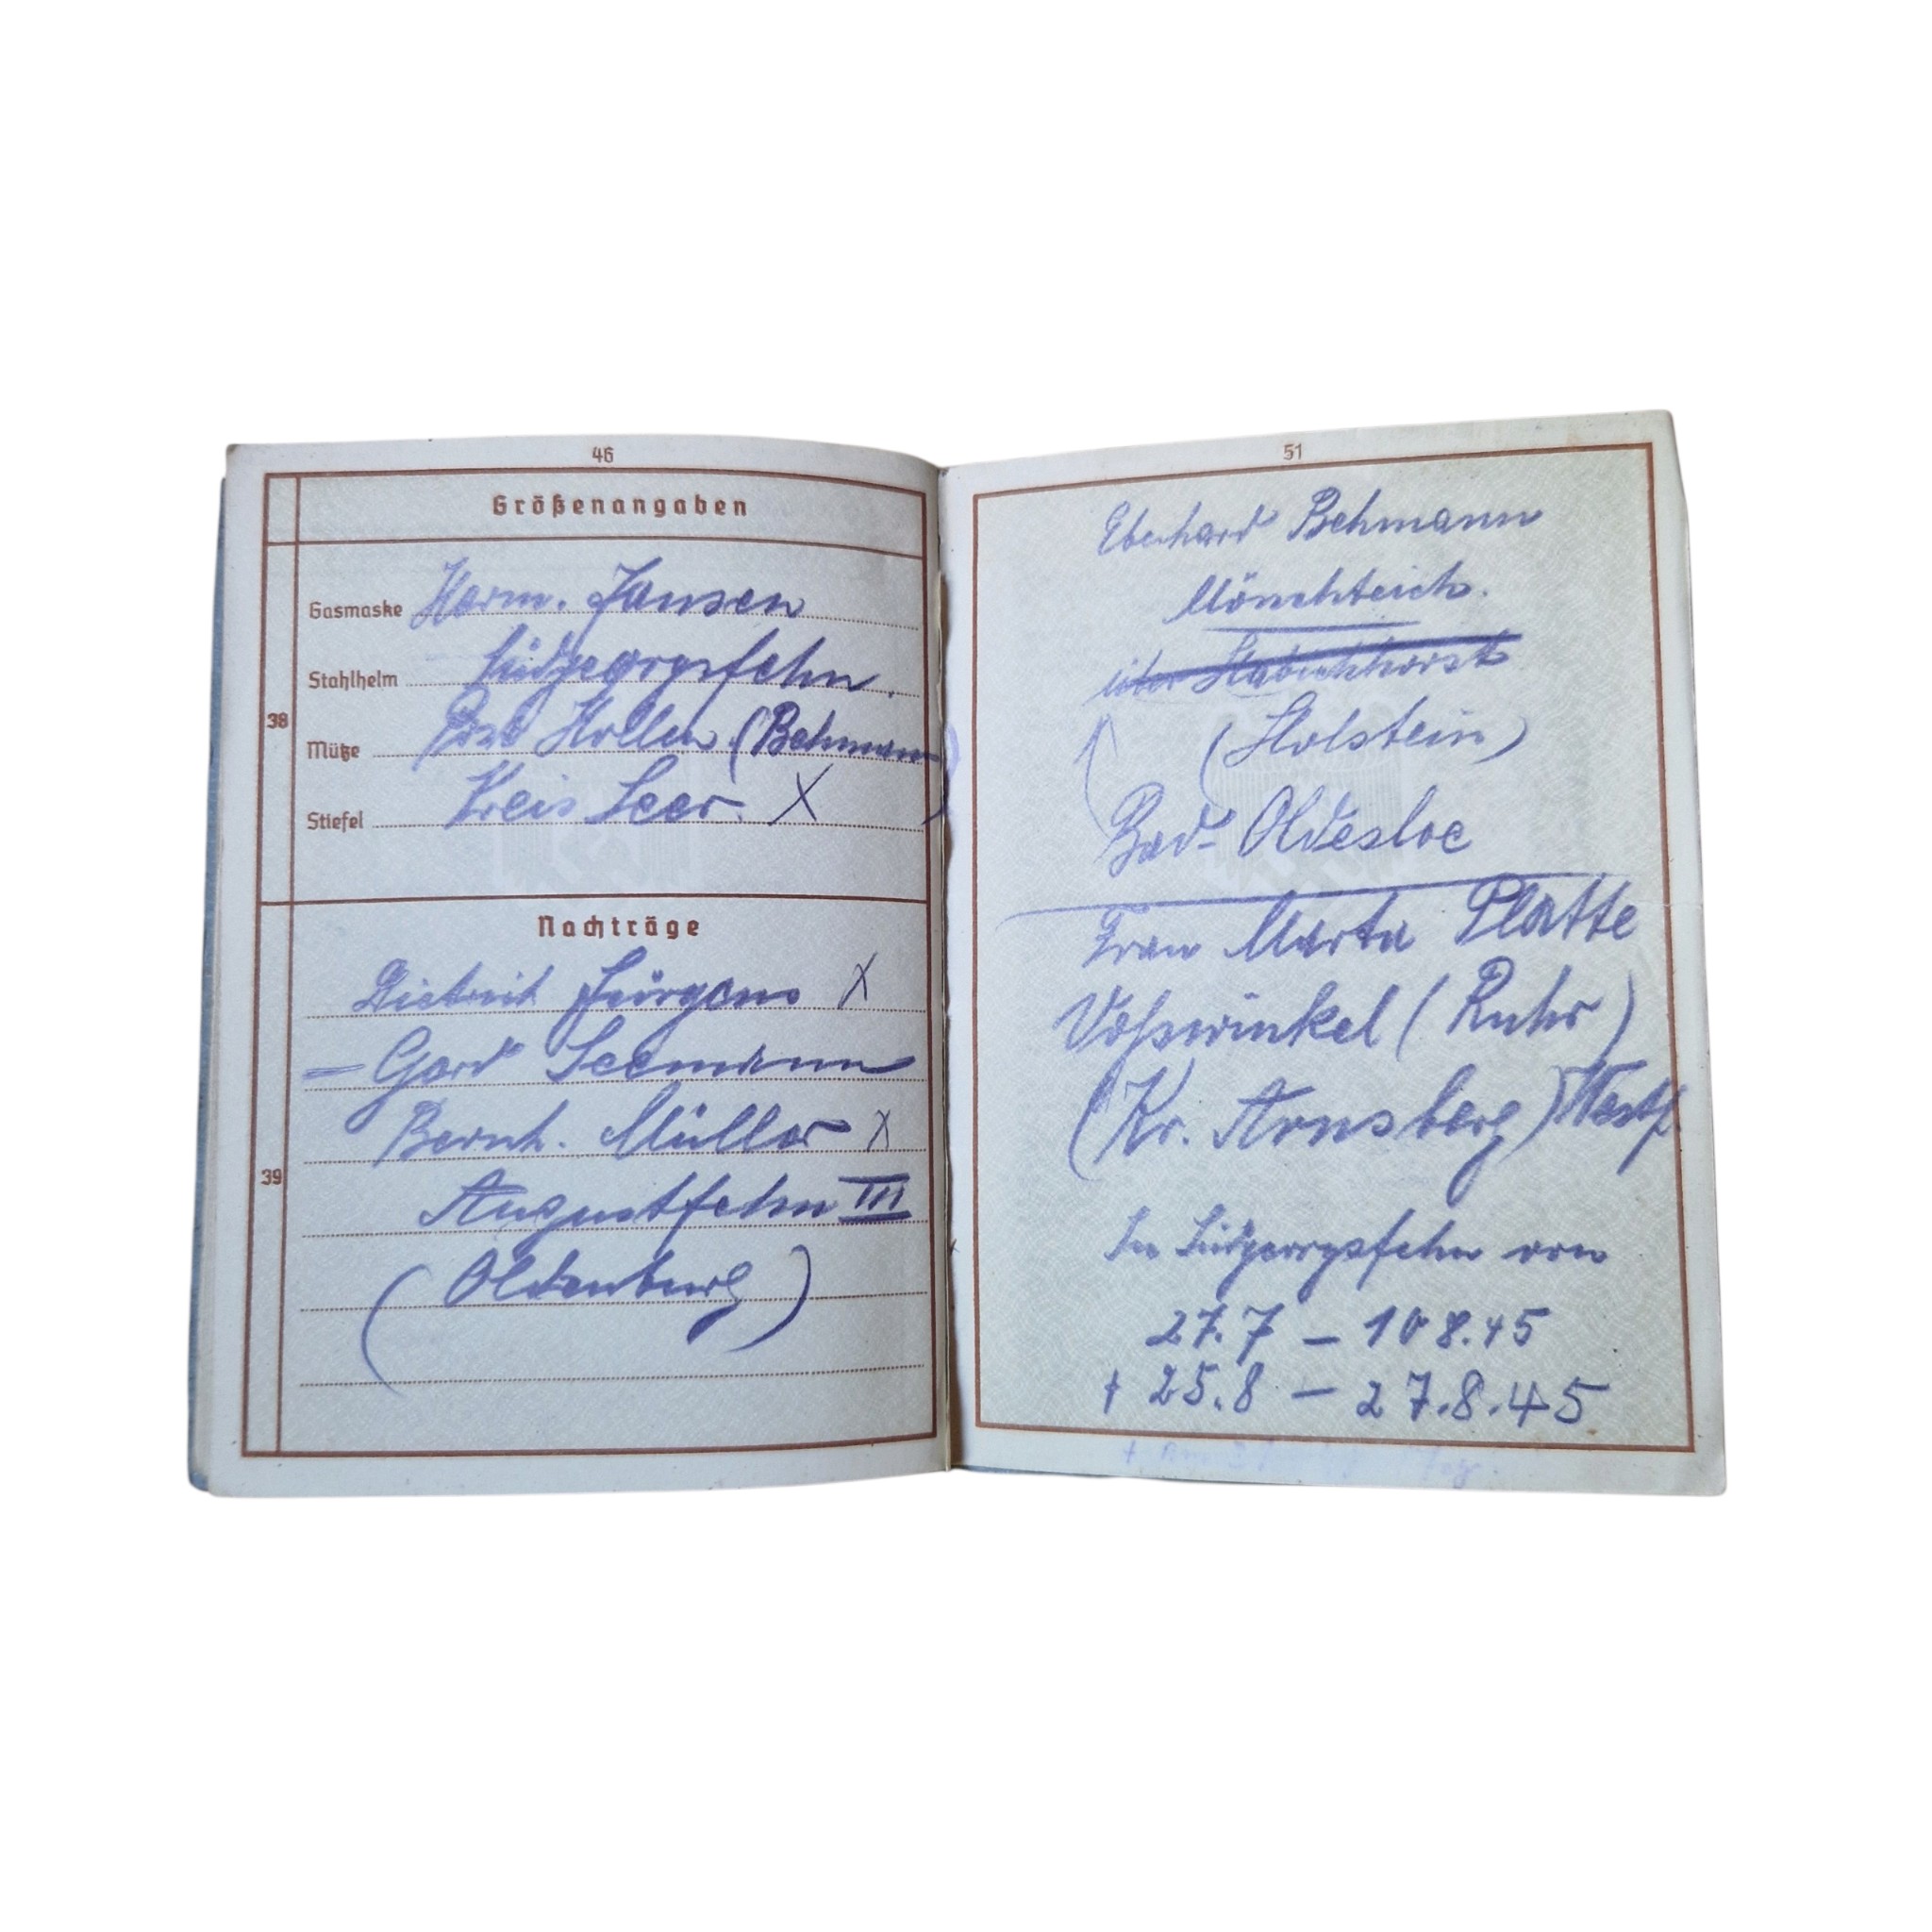 46
Größenangaben
38
Gasmaske Harm. Jansen
Stahlhelm Südgeorgsfehn.
Mütze Post Hollen (Behmann)
Stiefel Kreis Leer. X
39
Nachträge
Dietrich Jürgens X
= Gerd Seemann
Bernh. Müller X
Augustfehn III
(Oldenburg)
51
Eberhard Behmann
Mönchteich.
über Habichhorst
(Holstein)
Bad-Oldesloe
Frau Marta Platte
Voßwinkel (Ruhr)
(Kr. Arnsberg) Westf.
In Südgeorgsfehn von
27.7 – 10 8.45
+ 25.8 – 27.8.45